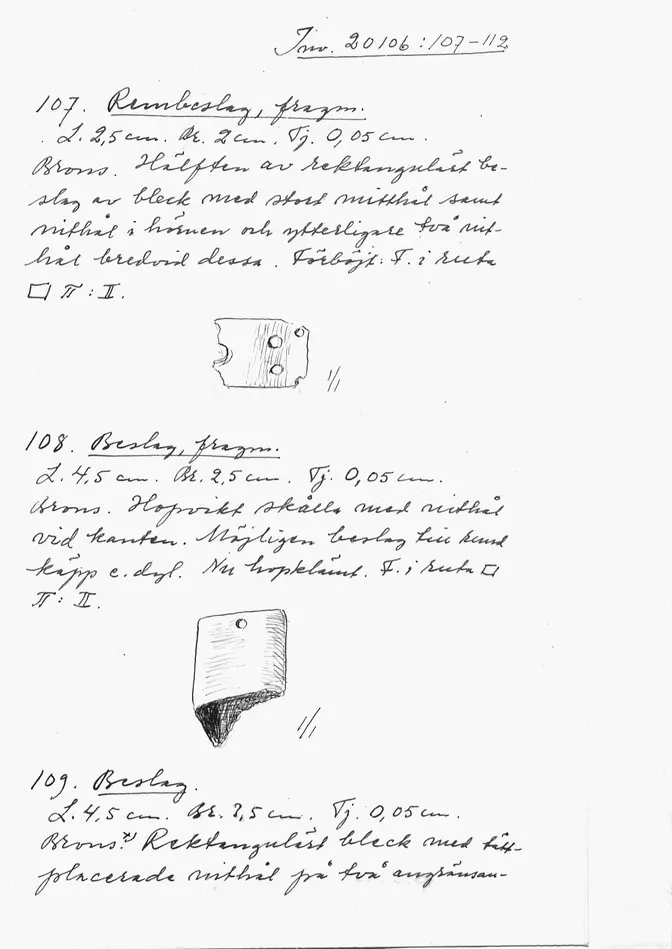 Inv. 20106:107-112
107. Rembeslag, fragm.
L. 2,5 cm. Br. 2 cm. Tj. 0,05 cm.
Brons. Hälften av rektangulärt be-
slag av bleck med stort mitthål samt
nithål i hörnen och ytterligare två nit-
hål bredvid dessa. Förböjt. F. i ruta
□ π : II.
1/1
108. Beslag, fragm.
L. 4,5 cm. Br. 2,5 cm. Tj. 0,05 cm.
Brons. Hopvikt skålla med nithål
vid kanten. Möjligen beslag till rund
käpp e. dyl. Nu hopklämt. F. i ruta □
π : II.
1/1
109. Beslag.
L. 4,5 cm. Br. 3,5 cm. Tj. 0,05 cm.
Brons. x) Rektangulärt bleck med tätt-
placerade nithål på två angränsan-